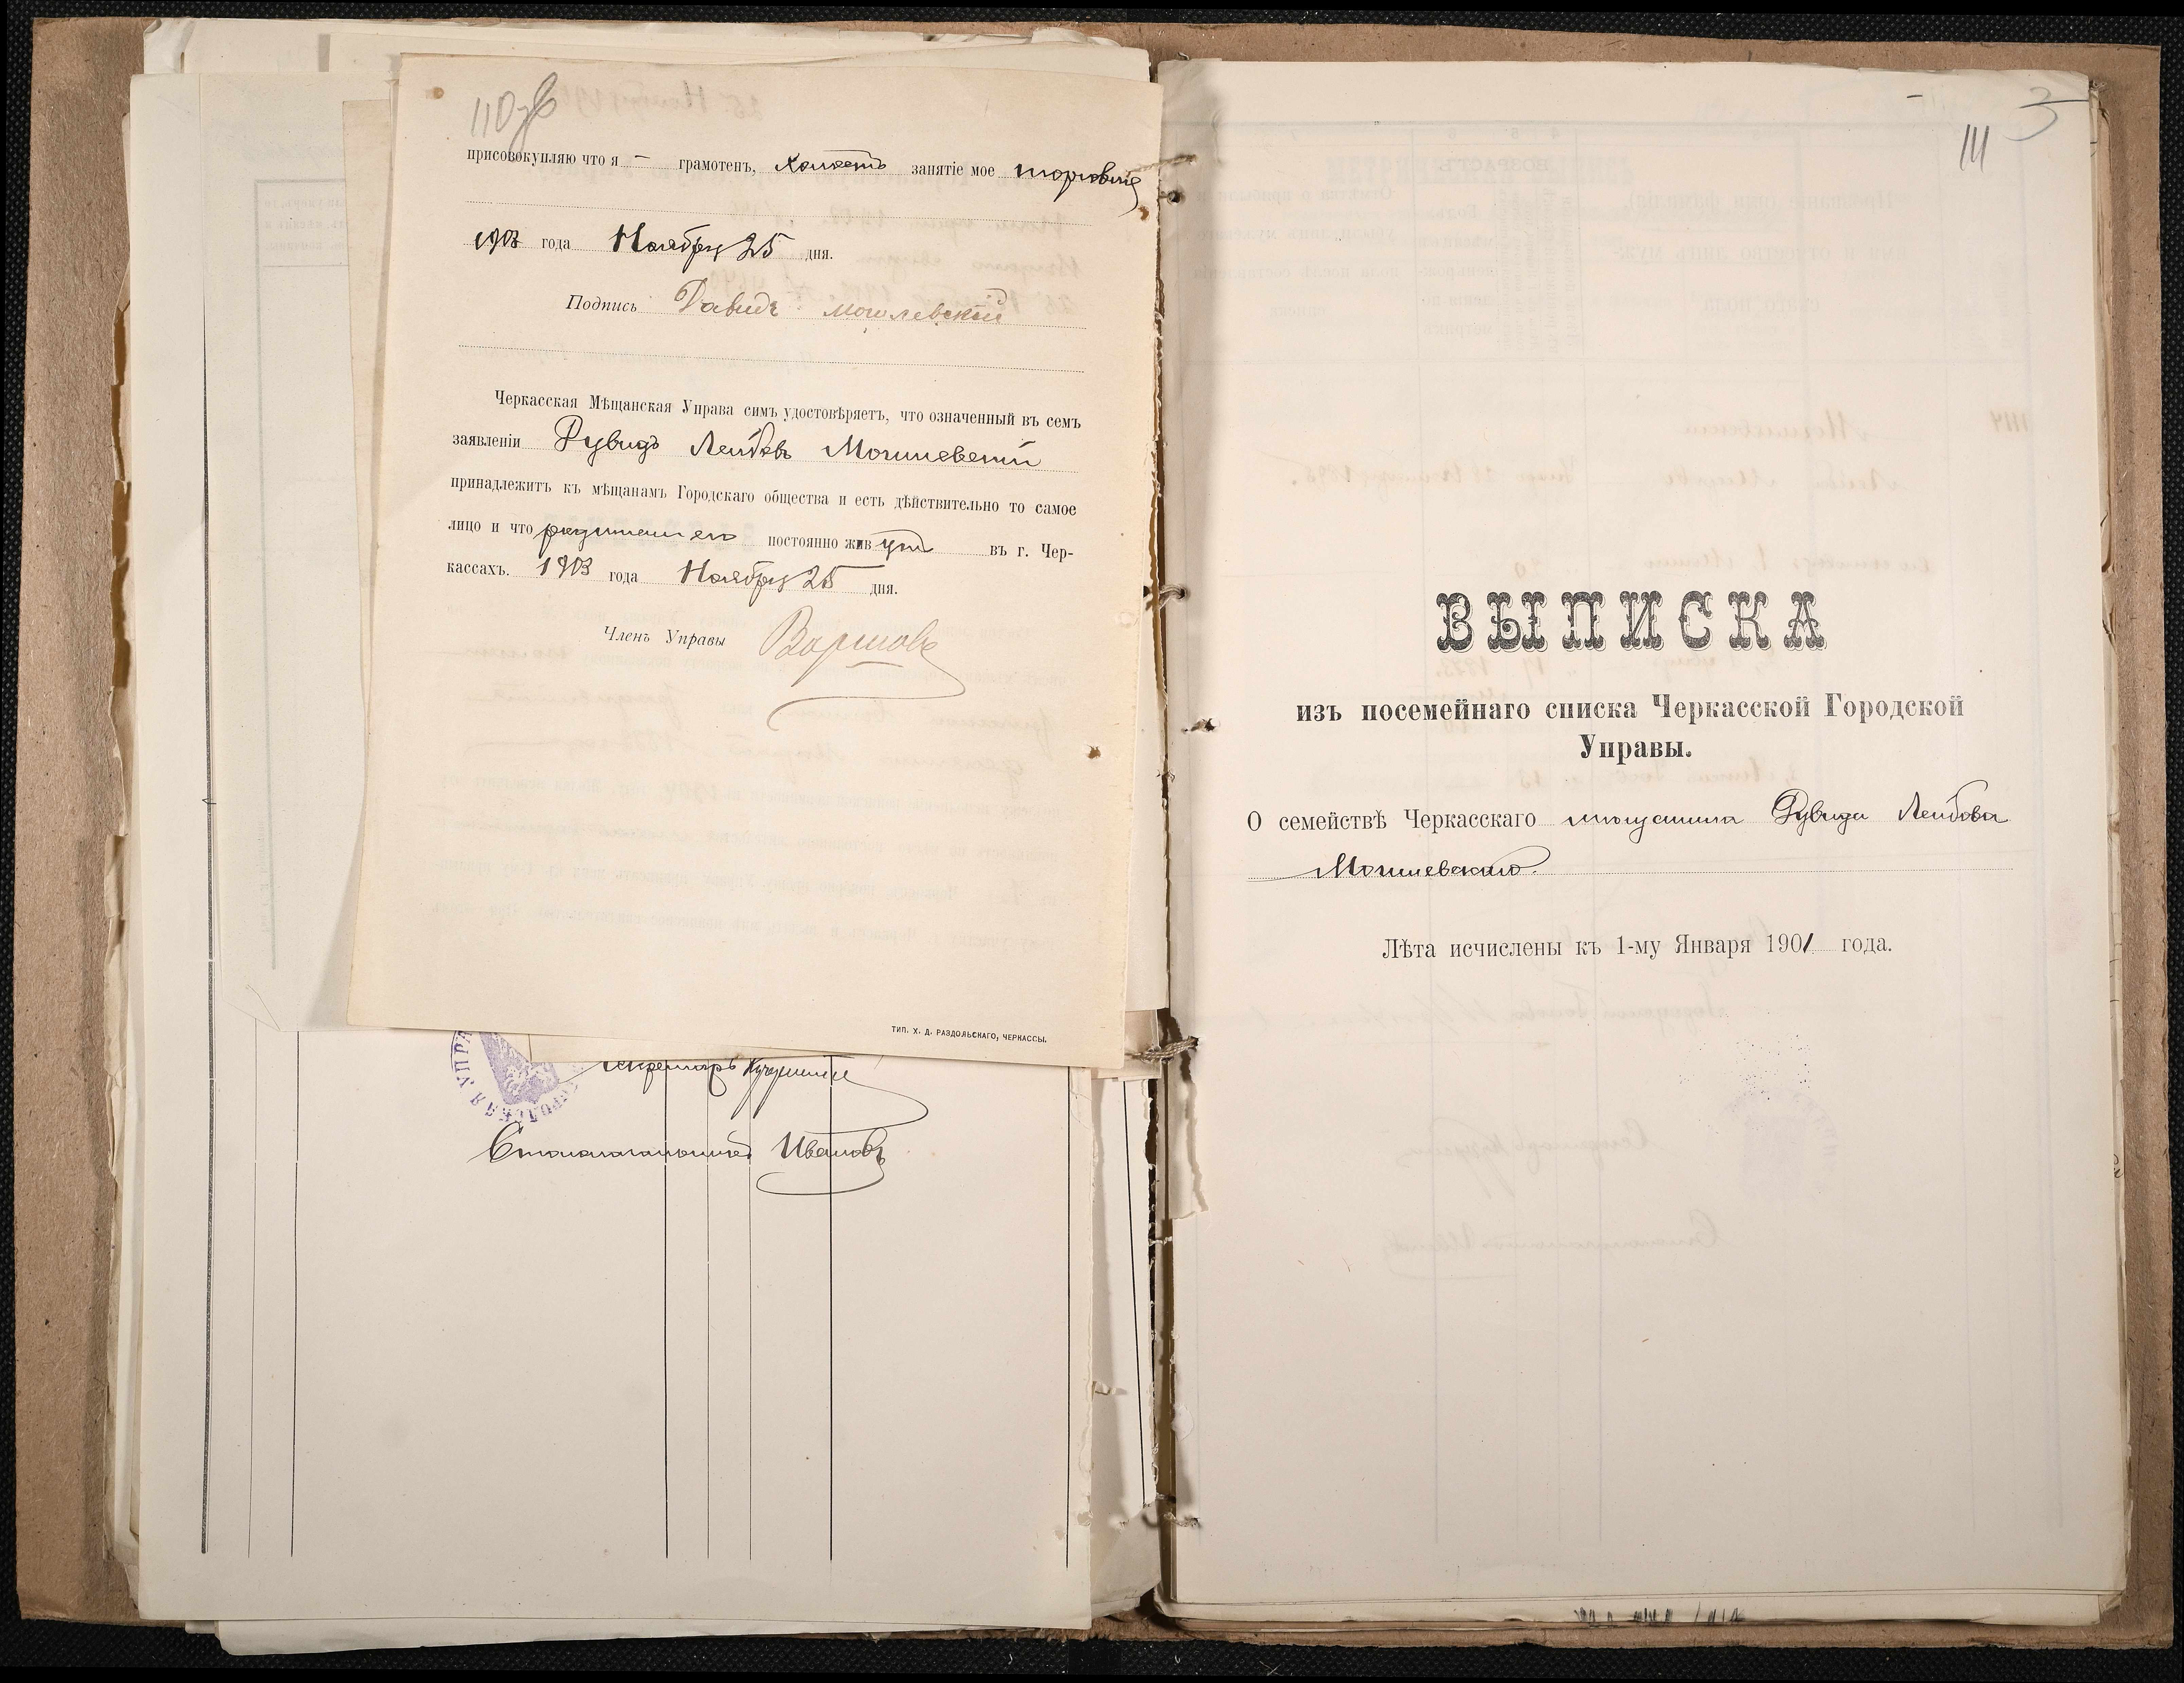 110 об
присовокупляю что я – грамотенъ, холостъ занятіе мое торговля
1903 года Ноября 25 дня.
Подпись Давидъ Могилевскій
Черкасская Мѣщанская Управа симъ удостовѣряетъ, что означенный въ семъ
заявленіи Дувидъ Лейбовъ Могилевскій
принадлежитъ къ мѣщанамъ Городскаго общества и есть дѣйствительно то самое
лицо и что родители его постоянно живутъ въ г. Чер-
кассахъ. 1903 года Ноября 25 дня.
Членъ Управы
ТИП. Х. Д. РАЗДОЛЬСКАГО, ЧЕРКАССЫ.
Секретарь
Столоначальникъ Ивановъ
3
111
ВЫПИСКА
изъ посемейнаго списка Черкасской Городской
Управы.
О семействѣ Черкасскаго мѣщанина Дувида Лейбова
Могилевскаго.
Лѣта исчислены къ 1-му Января 1901 года.